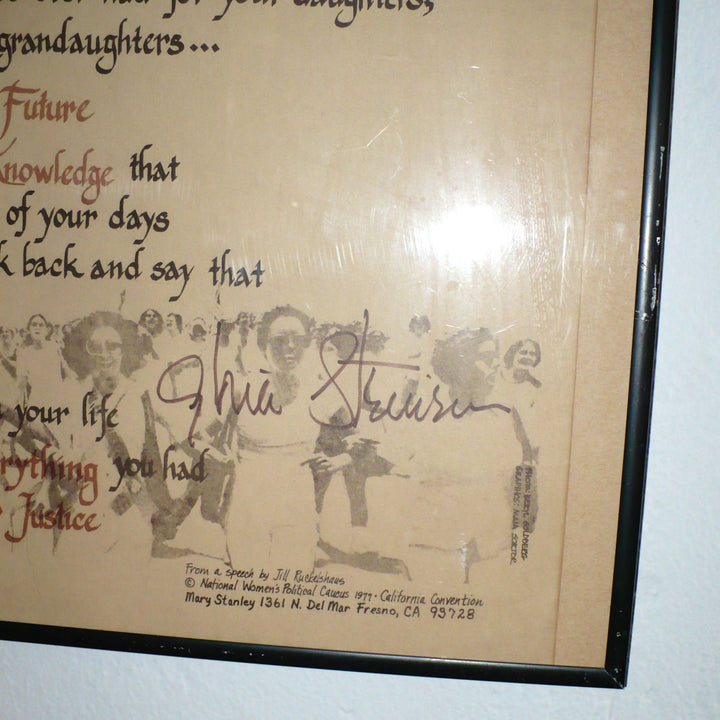 had for your daughters,
grandaughters...
Future
Knowledge that
of your days
back and say that
your life
Gloria Steinem
everything you had
Justice
PHOTO: BERYL GOLDBERG
GRAPHICS:
From a speech by Jill Ruckelshaus
© National Women's Political Caucus 1977 · California Convention
Mary Stanley 1361 N. Del Mar Fresno, CA 93728